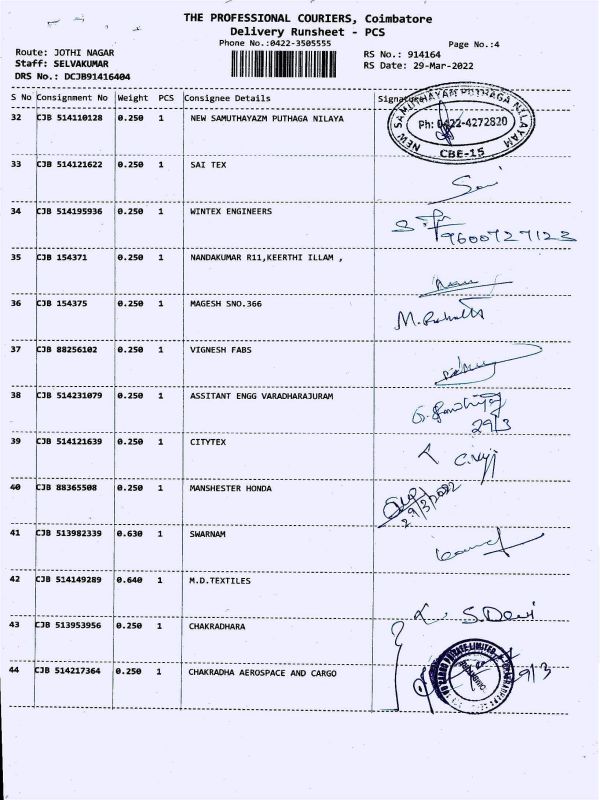 THE PROFESSIONAL COURIERS, Coimbatore
Delivery Runsheet - PCS
Phone No.:0422-3505555
Page No.:4
Route: JOTHI NAGAR
RS No.: 914164
Staff: SELVAKUMAR
RS Date: 29-Mar-2022
DRS No.: DCJB91416404
S No Consignment No Weight PCS Consignee Details Signature
32 CJB 514110128 0.250 1 NEW SAMUTHAYAZM PUTHAGA NILAYA
NEW SAMUTHAYAM PUTHAGA NILAYAM
Ph: 0422-4272820
CBE-15
33 CJB 514121622 0.250 1 SAI TEX
34 CJB 514195936 0.250 1 WINTEX ENGINEERS
9600727123
35 CJB 154371 0.250 1 NANDAKUMAR R11,KEERTHI ILLAM ,
36 CJB 154375 0.250 1 MAGESH SNO.366
37 CJB 88256102 0.250 1 VIGNESH FABS
38 CJB 514231079 0.250 1 ASSITANT ENGG VARADHARAJURAM
29/3
39 CJB 514121639 0.250 1 CITYTEX
40 CJB 88365508 0.250 1 MANSHESTER HONDA
29/3/2022
41 CJB 513982339 0.630 1 SWARNAM
42 CJB 514149289 0.640 1 M.D.TEXTILES
S.Devi
43 CJB 513953956 0.250 1 CHAKRADHARA
44 CJB 514217364 0.250 1 CHAKRADHA AEROSPACE AND CARGO
29/3